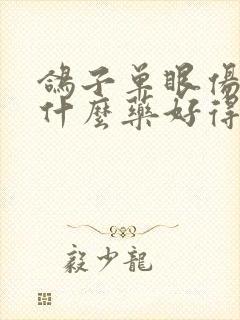 鴿子單眼傷
什麼藥好得
毅少龍